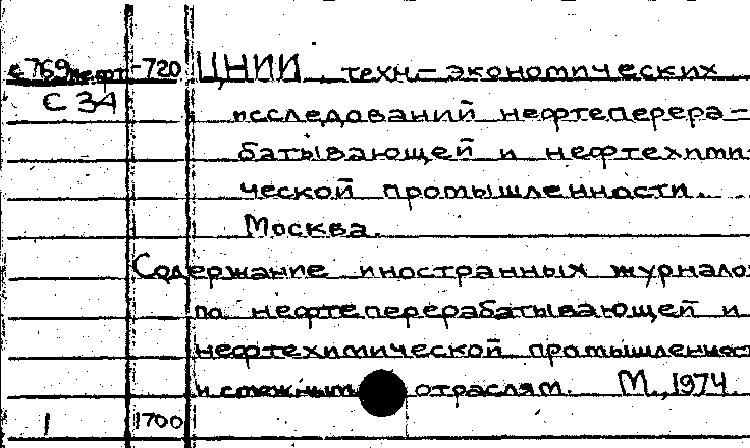 с769нефт -720 ЦНИИ техн-экономических
С 34
исследований нефтеперера-
батывающей и нефтехими-
ческой промышленности.
Москва.
Содержание иностранных журнало
по нефтеперерабатывающей и
нефтехимической промышленнос
и смежным отраслям. М., 1974.
1 1700